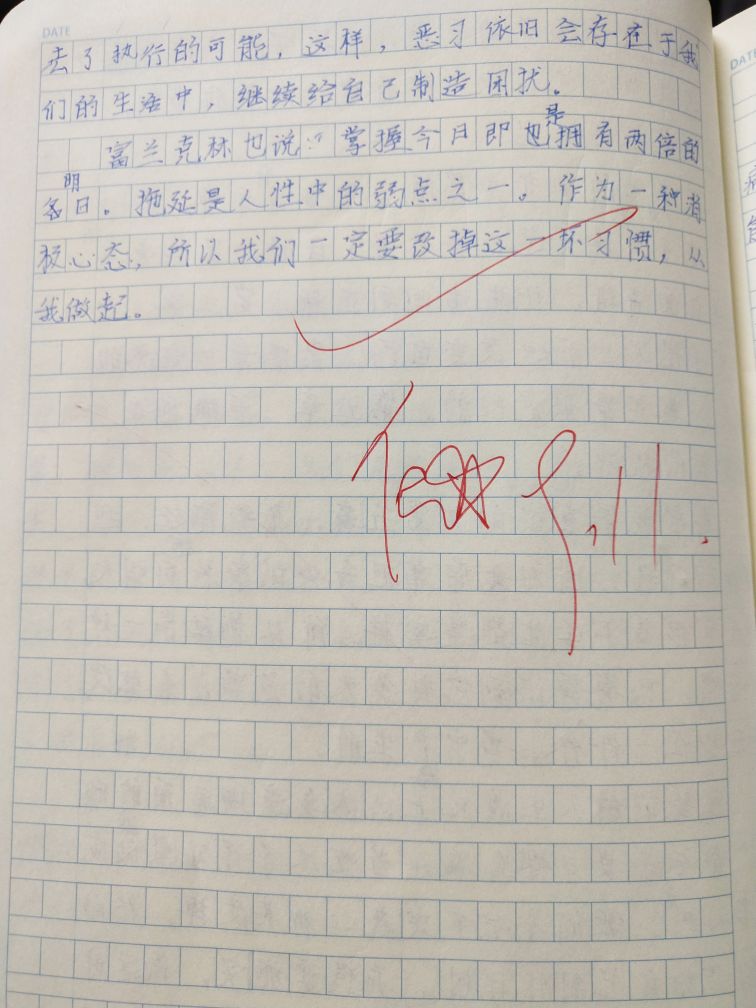 DATE
去了执行的可能，这样，恶习依旧会存在于我
们的生活中，继续给自己制造困扰。
富兰克林也说：“掌握今日即也是拥有两倍的
明日。拖延是人性中的弱点之一。作为一种消
极心态，所以我们一定要改掉这一坏习惯，从
我做起。
9.11.
DATE